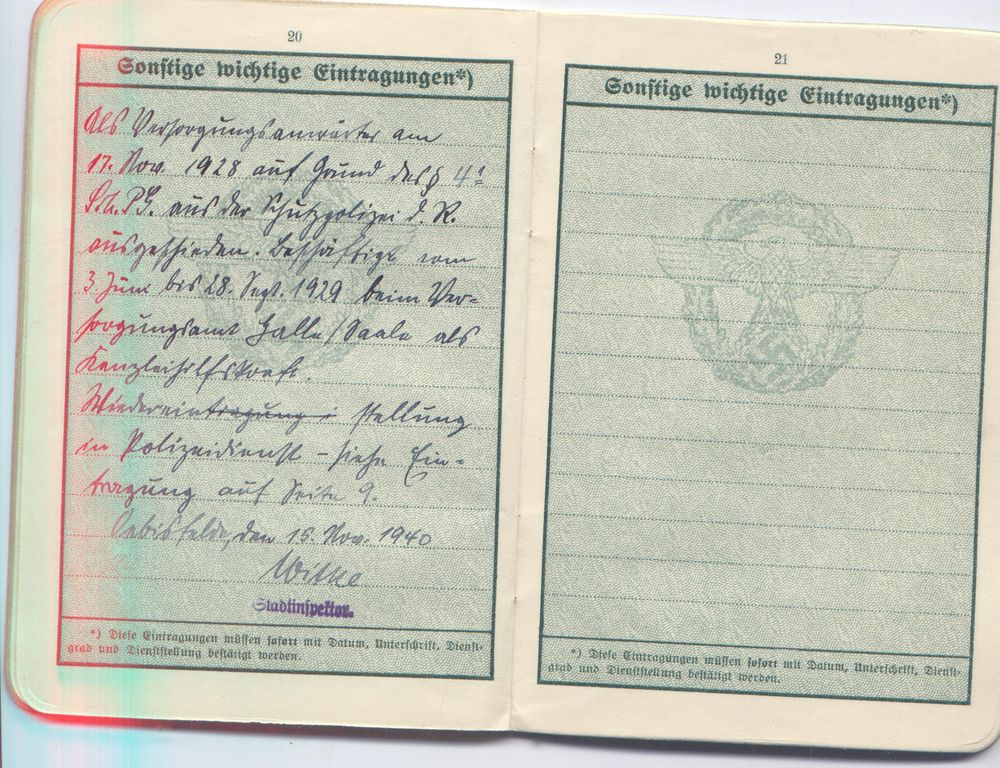 20
Sonstige wichtige Eintragungen*)
Als Versorgungsanwärter am
17. Nov. 1928 auf Grund des § 4
aus der Schutzpolizei d. R.
ausgeschieden. Beschäftigt vom
3. Juni bis 28. Sept. 1929 beim Ver-
sorgungsamt Halle/Saale als
Kanzleihilfskraft.
Wiedereintragung stellung
in Polizeidienst – siehe Ein-
tragung auf Seite 9.
Oebisfelde, den 15. Nov. 1940
Witke
Stadtinspektor.
*) Diese Eintragungen müssen sofort mit Datum, Unterschrift, Dienst-
grad und Dienststellung bestätigt werden.
21
Sonstige wichtige Eintragungen*)
*) Diese Eintragungen müssen sofort mit Datum, Unterschrift, Dienst-
grad und Dienststellung bestätigt werden.